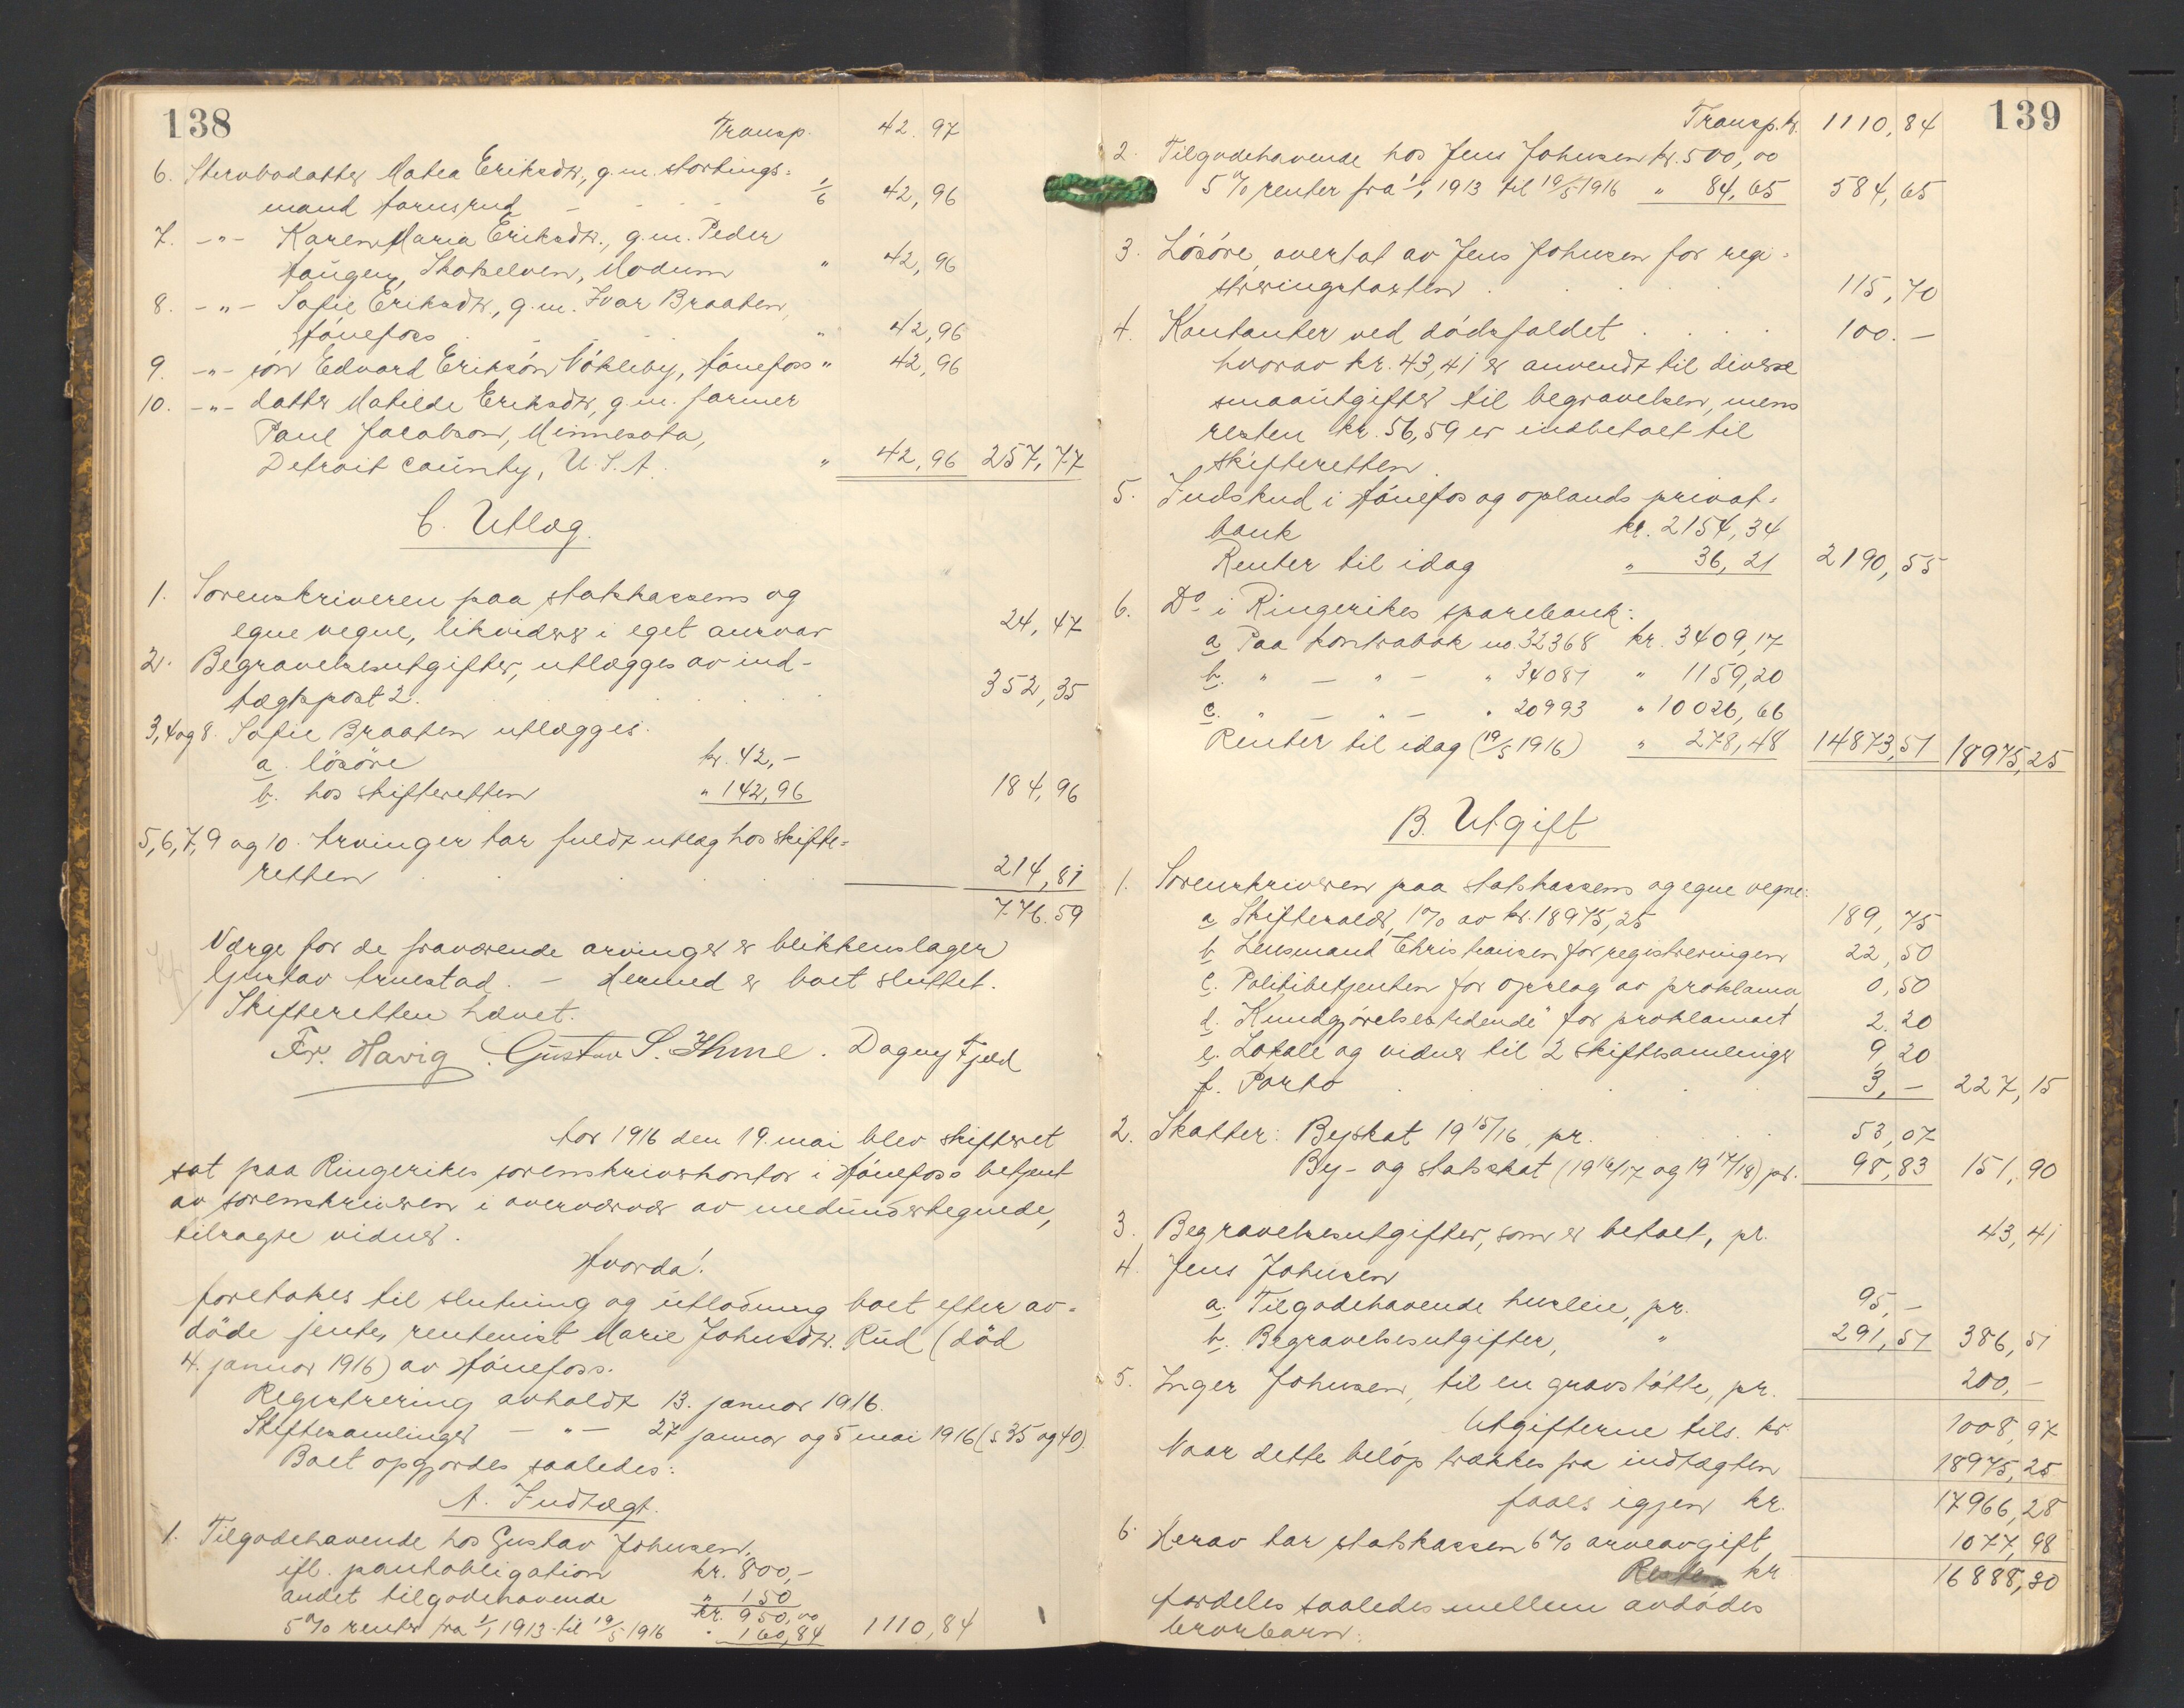 138
Transp. 42.97
6. Stervbodatter Matea Eriksdtr., g.m. stortings-
mand Hornsrud - - - - 1/6 42,96
7. -"- Karen Maria Eriksdtr., g.m. Peder
Haugen, Skotselven, Modum " 42,96
8. -"- Sofie Eriksdtr., g.m. Ivar Braaten,
Hönefoss . . . " 42,96
9. -"- sön Edvard Eriksön Vökleby, Hönefoss " 42,96
10. -"- datter Matilde Eriksdtr., g.m. farmer
Paul Jacobson, Minnesota,
Detroit county, U.S.A. " 42,96 257,77
C. Utlæg.
1. Sorenskriveren paa statskassens og
egne vegne, likviderer i eget ansvar 24,47
2. Begravelsesutgifter, utlægges av ind-
tægtspost 2. . . . 352,35
3,4 og 8. Sofie Braaten utlægges.
a. lösöre kr. 42,-
b. hos skifteretten " 142,96 184,96
5,6,7,9 og 10. Arvinger har fuldt utlæg hos skifte-
retten . . . . 214,81
776.59
Værge for de fraværende arvinger er blikkenslager
Gustav Arnestad. - Hermed er boet sluttet.
Skifteretten hævet.
Fr. Havig. Gustav S. Ihme. Dagny Fjeld
Aar 1916 den 19. mai blev skifteret
sat paa Ringerikes sorenskriverkontor i Hönefoss betjent
av sorenskriveren i overværelse av medundertegnede,
tilragte vidner.
Hvorda!
foretokes til slutning og utlodning boet efter av-
döde jente, rentenist Marie Johnsdtr. Rud (död
4. januar 1916) av Hönefoss.
Registrering avholdt 13. januar 1916.
Skiftesamlinger - " - 27 januar og 5 mai 1916 (s 35 og 40)
Boet opgjordes saaledes:
A. Indtægt.
1. Tilgodehavende hos Gustav Johnsen,
ifl. pantobligation kr. 800,-
andet tilgodehavende " 150
kr. 950,00
5% renter fra 1/1 1913 til 19/5 1916 " 160,84 1110,84
139
Transp. kr. 1110,84
2. Tilgodehavende hos Jens Johnsen kr. 500,00
5% renter fra 1/1 1913 til 19/5 1916 " 84,65 584,65
3. Lösöre, overtat av Jens Johnsen for regi-
streringstaxten . . . . 115,70
4. Kontanter ved dödsfaldet . . . . 100.-
hvorav kr. 43,41 er anvendt til diverse
smaautgifter til begravelsen, mens
resten kr. 56,59 er indbetalt til
skifteretten.
5. Indskud i Hönefos og oplands privat-
bank kr. 2154,34
Renter til idag " 36,21 2190,55
6. Do i Ringerikes sparebank:
a. Paa kontrabok no. 32368 kr. 3409,17
b. " - " - " 34087 " 1159,20
c. " - " - " 20993 " 10026,66
Renter til idag (19/5 1916) " 278,48 14873,51 18975,25
B. Utgift
1. Sorenskriveren paa statskassens og egne vegne:
a. Skifteraldt, 1% av kr. 18975,25 189,75
b. Lensmand Christiansen for registreringen 22,50
c. Politibetjenten for opslag av proklama 0,50
d. "Kundgjörelsestidende" for proklamaet 2.20
e. Lokale og vidner til 2 skiftesamlinger 9,20
f. Porto . . . . 3,- 227,15
2. Skatter: Byskat 1915/16, pr. . . . . 53,07
By- og statsskat (1916/17 og 1917/18) pr. 98,83 151,90
3. Begravelsesutgifter, som er betalt, pr. 43,41
4. Jens Johnsen
a. Tilgodehavende husleie, pr. 95,-
b. Begravelsesutgifter, " 291,51 386,51
5. Inger Johnsen, til en gravstötte, pr. 200,-
Utgifterne tils. kr. 1008,97
Naar dette belöp trækkes fra indtægten 18975,25
faaes igjen kr. 17966,28
6. Herav har statskassen 6% arveavgift 1077,98
Resten kr 16888,30
fordeles saaledes mellem avdödes
brorbarn: